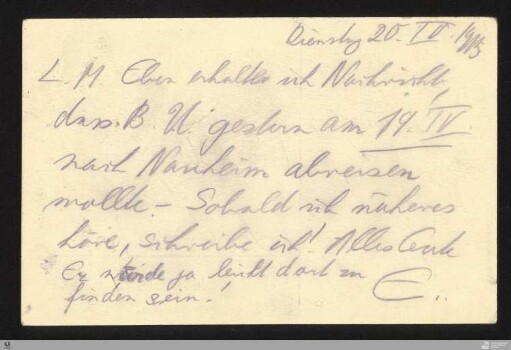 Dienstag 20. IV. 1915
L. M. Eben erhalte ich Nachricht,
dass B. U. gestern am 19. IV.
nach Nauheim abreisen
wollte. – Sobald ich näheres
höre, schreibe ich! Alles Gute
Er würde ja leicht dort zu E.
finden sein.!